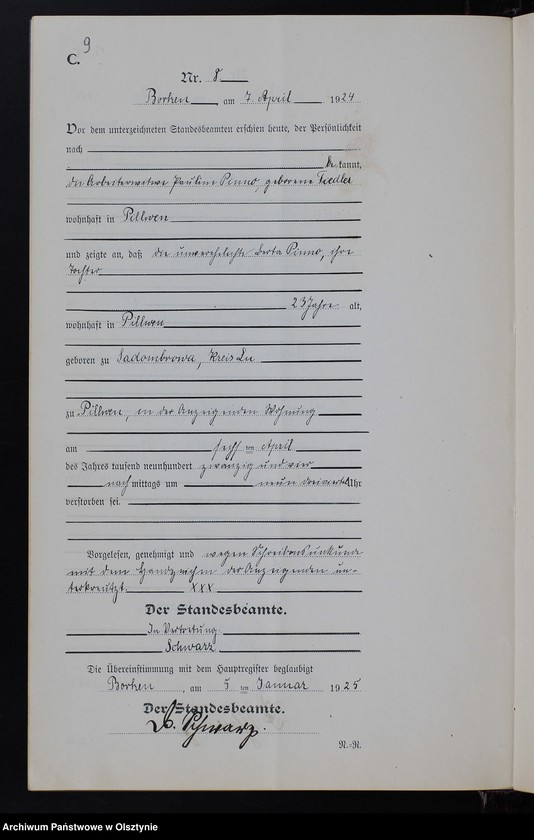 9
C.
Nr. 8
Borken, am 7. April 1924
Vor dem unterzeichneten Standesbeamten erschien heute, der Persönlichkeit
nach
be kannt,
die Arbeiterwitwe Pauline Pinno, geborene Fiedler
wohnhaft in Pillwen
und zeigte an, daß die unverehelichte Berta Pinno, ihre
Tochter
23 Jahre alt,
wohnhaft in Pillwen
geboren zu Sadombrowa, Kreis
zu Pillwen, in der Anzeigenden Wohnung
am sechs ten April
des Jahres tausend neunhundert zwanzig und vier
nach mittags um neun dreiviertel Uhr
verstorben sei.
Vorgelesen, genehmigt und wegen Schreibensunkunde
mit dem Handzeichen der Anzeigenden un-
terkreuzt. XXX
Der Standesbeamte.
In Vertretung
Schwarz
Die Übereinstimmung mit dem Hauptregister beglaubigt
Borken, am 5 ten Januar 1925
Der Standesbeamte.
Schwarz.
N.-R.
Archiwum Państwowe w Olsztynie